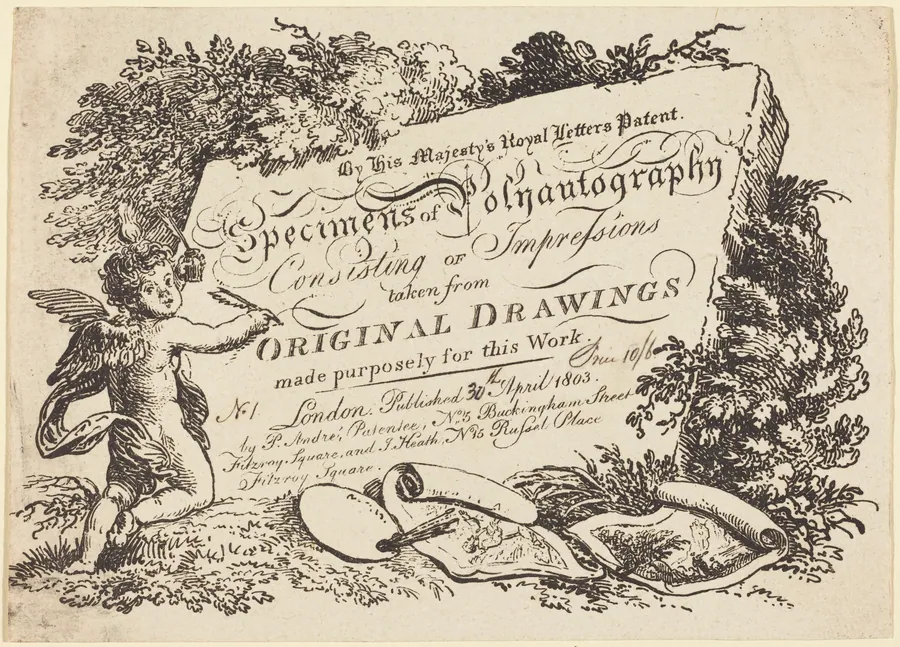 By His Majesty's Royal Letters Patent.
Specimens of Polyautography
Consisting of Impreſsions
taken from
ORIGINAL DRAWINGS
made purposely for this Work.
Price 10/6
No. 1
London. Published 30th April 1803.
by P. André, Patentee, No. 5 Buckingham Street
Fitzroy Square, and J. Heath, No. 15 Rußel Place
Fitzroy Square.